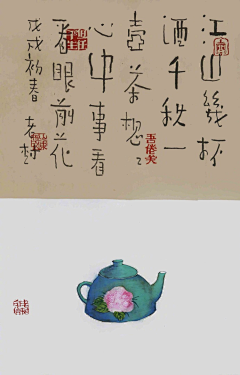 江山几杯
酒千秋一
壶茶想想
心中事看
看眼前花
戊戌初春 老树